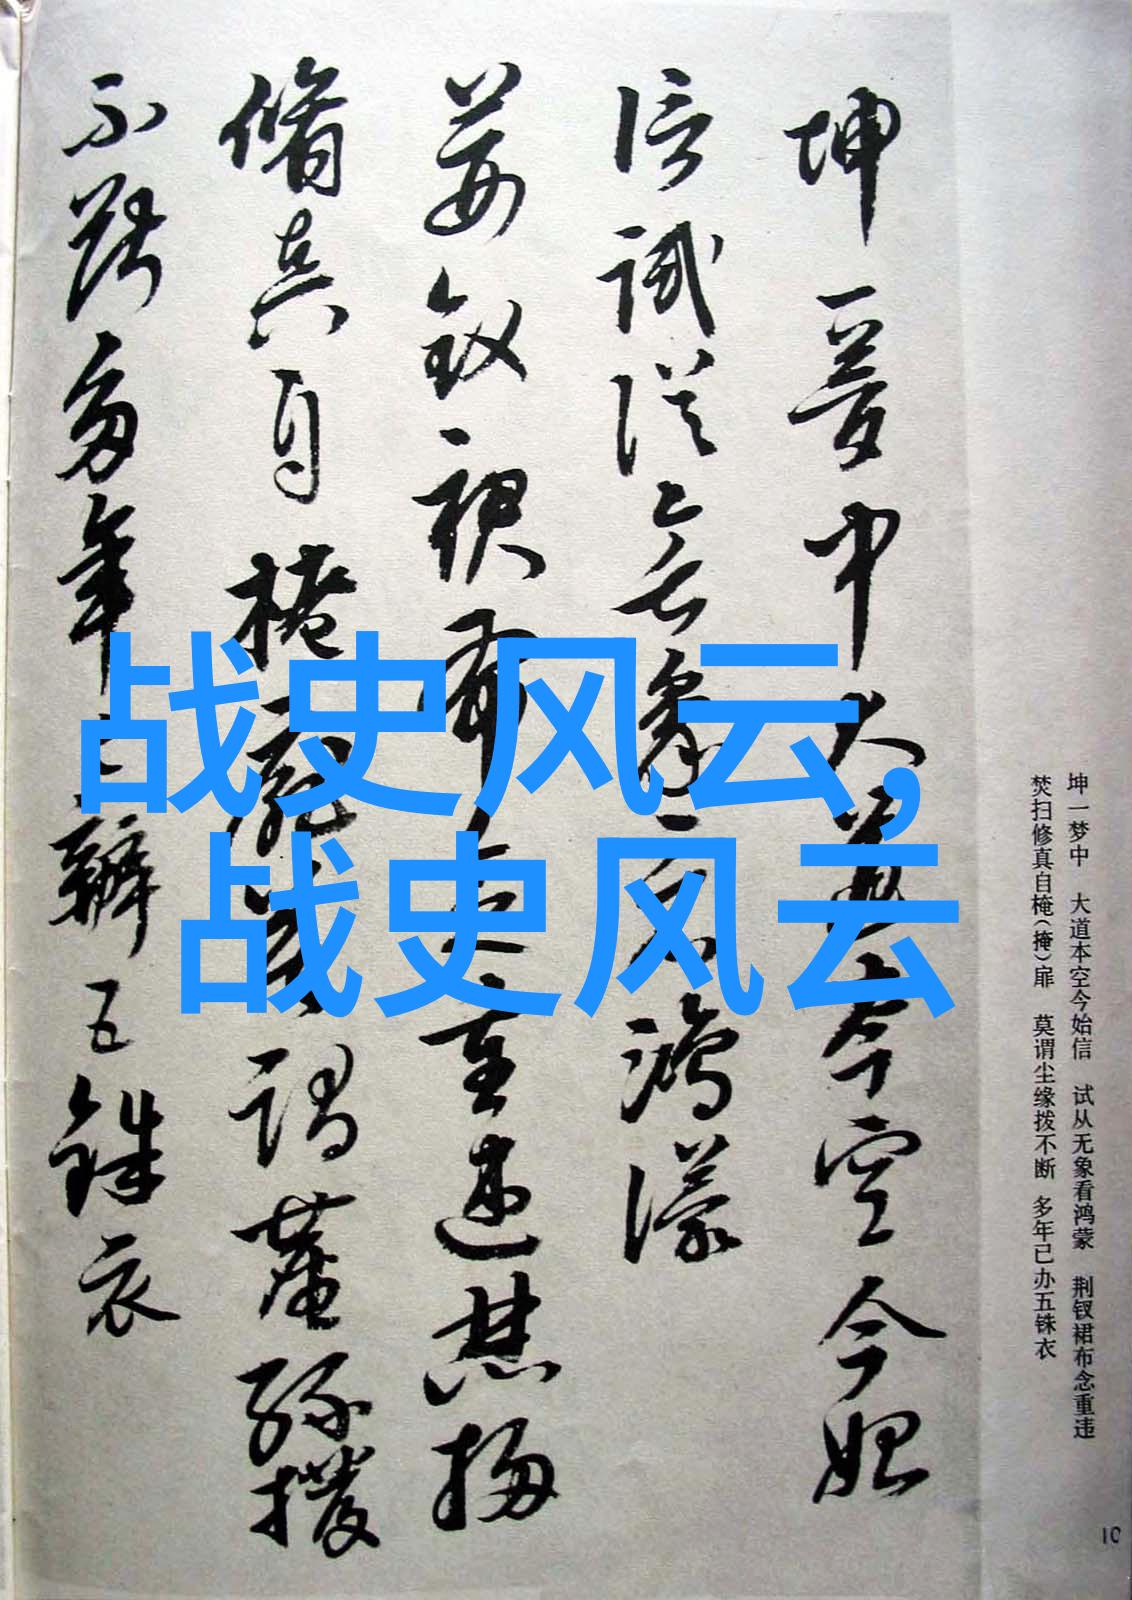 坤一梦中大道本空今始
信试从无象看鸿蒙
荆钗裙布念重违焚扫
修真自掩扉莫谓尘缘拨
不断多年已办五铢衣
战史风云,
战史风云
坤一梦中 大道本空今始信 试从无象看鸿蒙 荆钗裙布念重违
焚扫修真自掩(掩)扉 莫谓尘缘拨不断 多年已办五铢衣
10